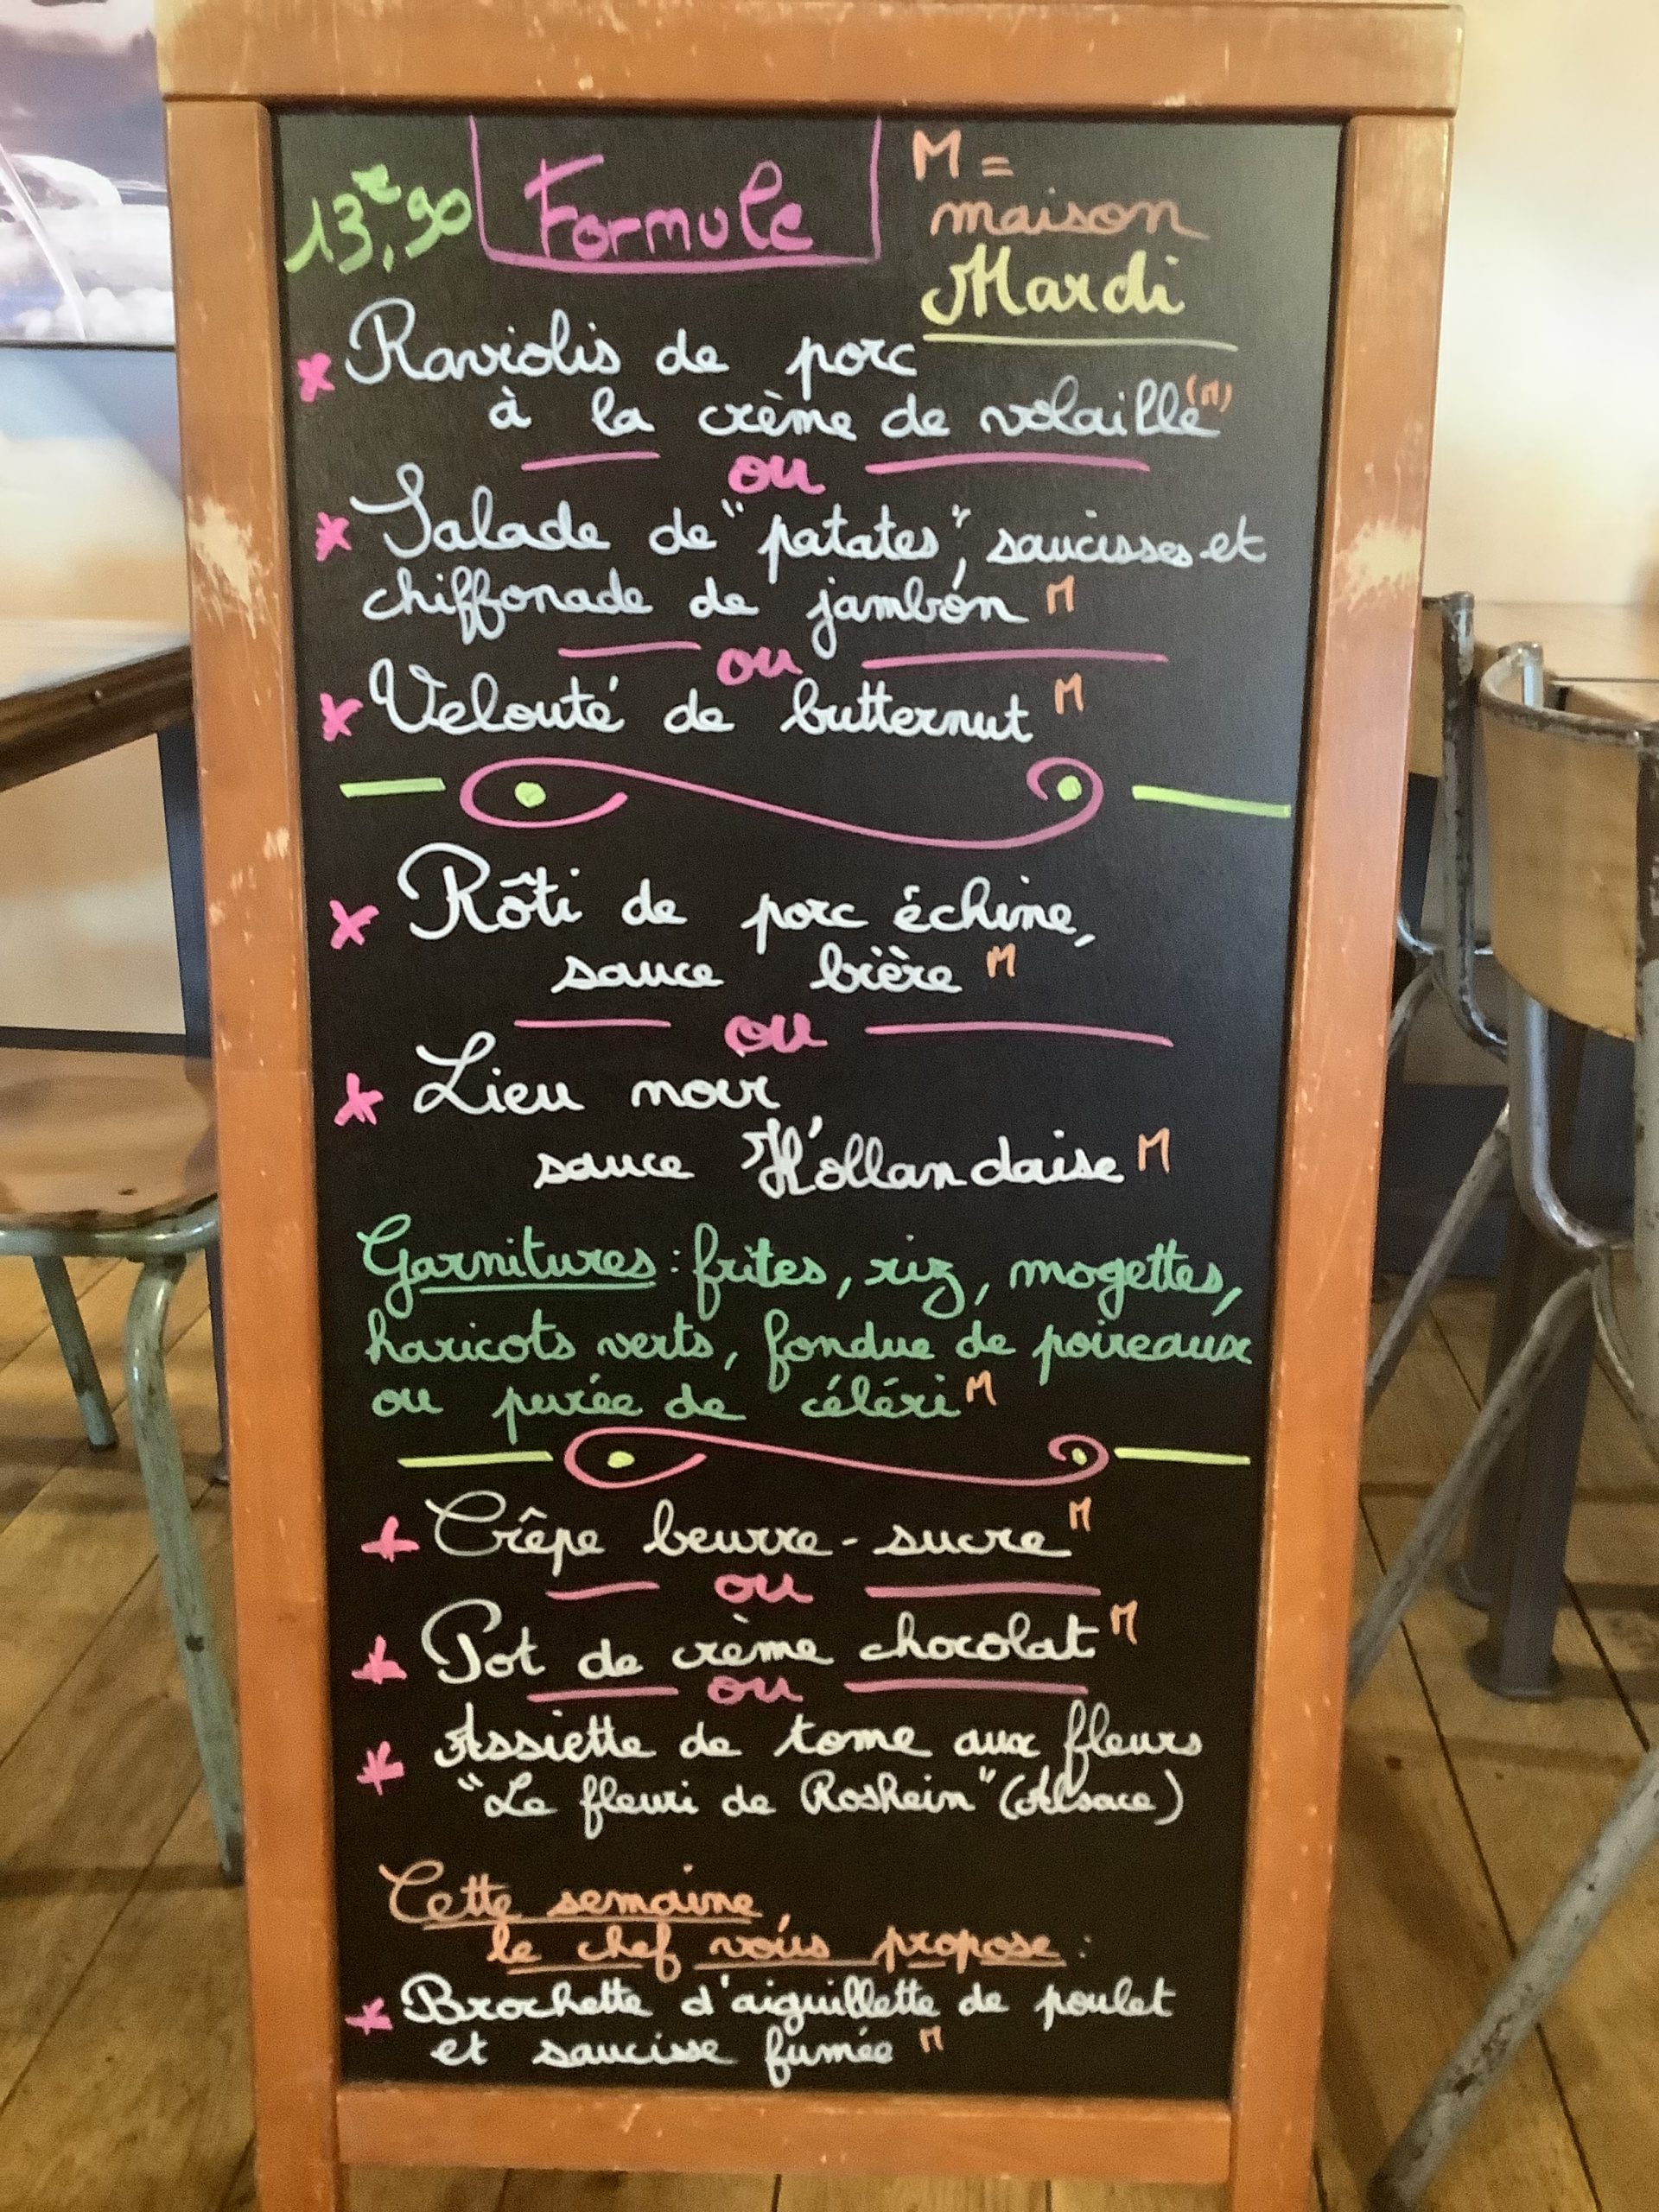 13€,90 Formule M =
maison
Mardi
Raviolis de porc
à la crème de volaille (M)
ou
Salade de "patates", saucisses et
chiffonade de jambon M
ou
Velouté de butternut M
Rôti de porc échine,
sauce bière M
ou
Lieu noir
sauce Hollandaise M
Garnitures : frites, riz, mogettes,
haricots verts, fondue de poireaux
ou purée de céléri M
Crêpe beurre-sucre M
ou
Pot de crème chocolat M
ou
Assiette de tome aux fleurs
"Le fleuri de Rosheim" (Alsace)
Cette semaine
le chef vous propose :
Brochette d'aiguillette de poulet
et saucisse fumée M